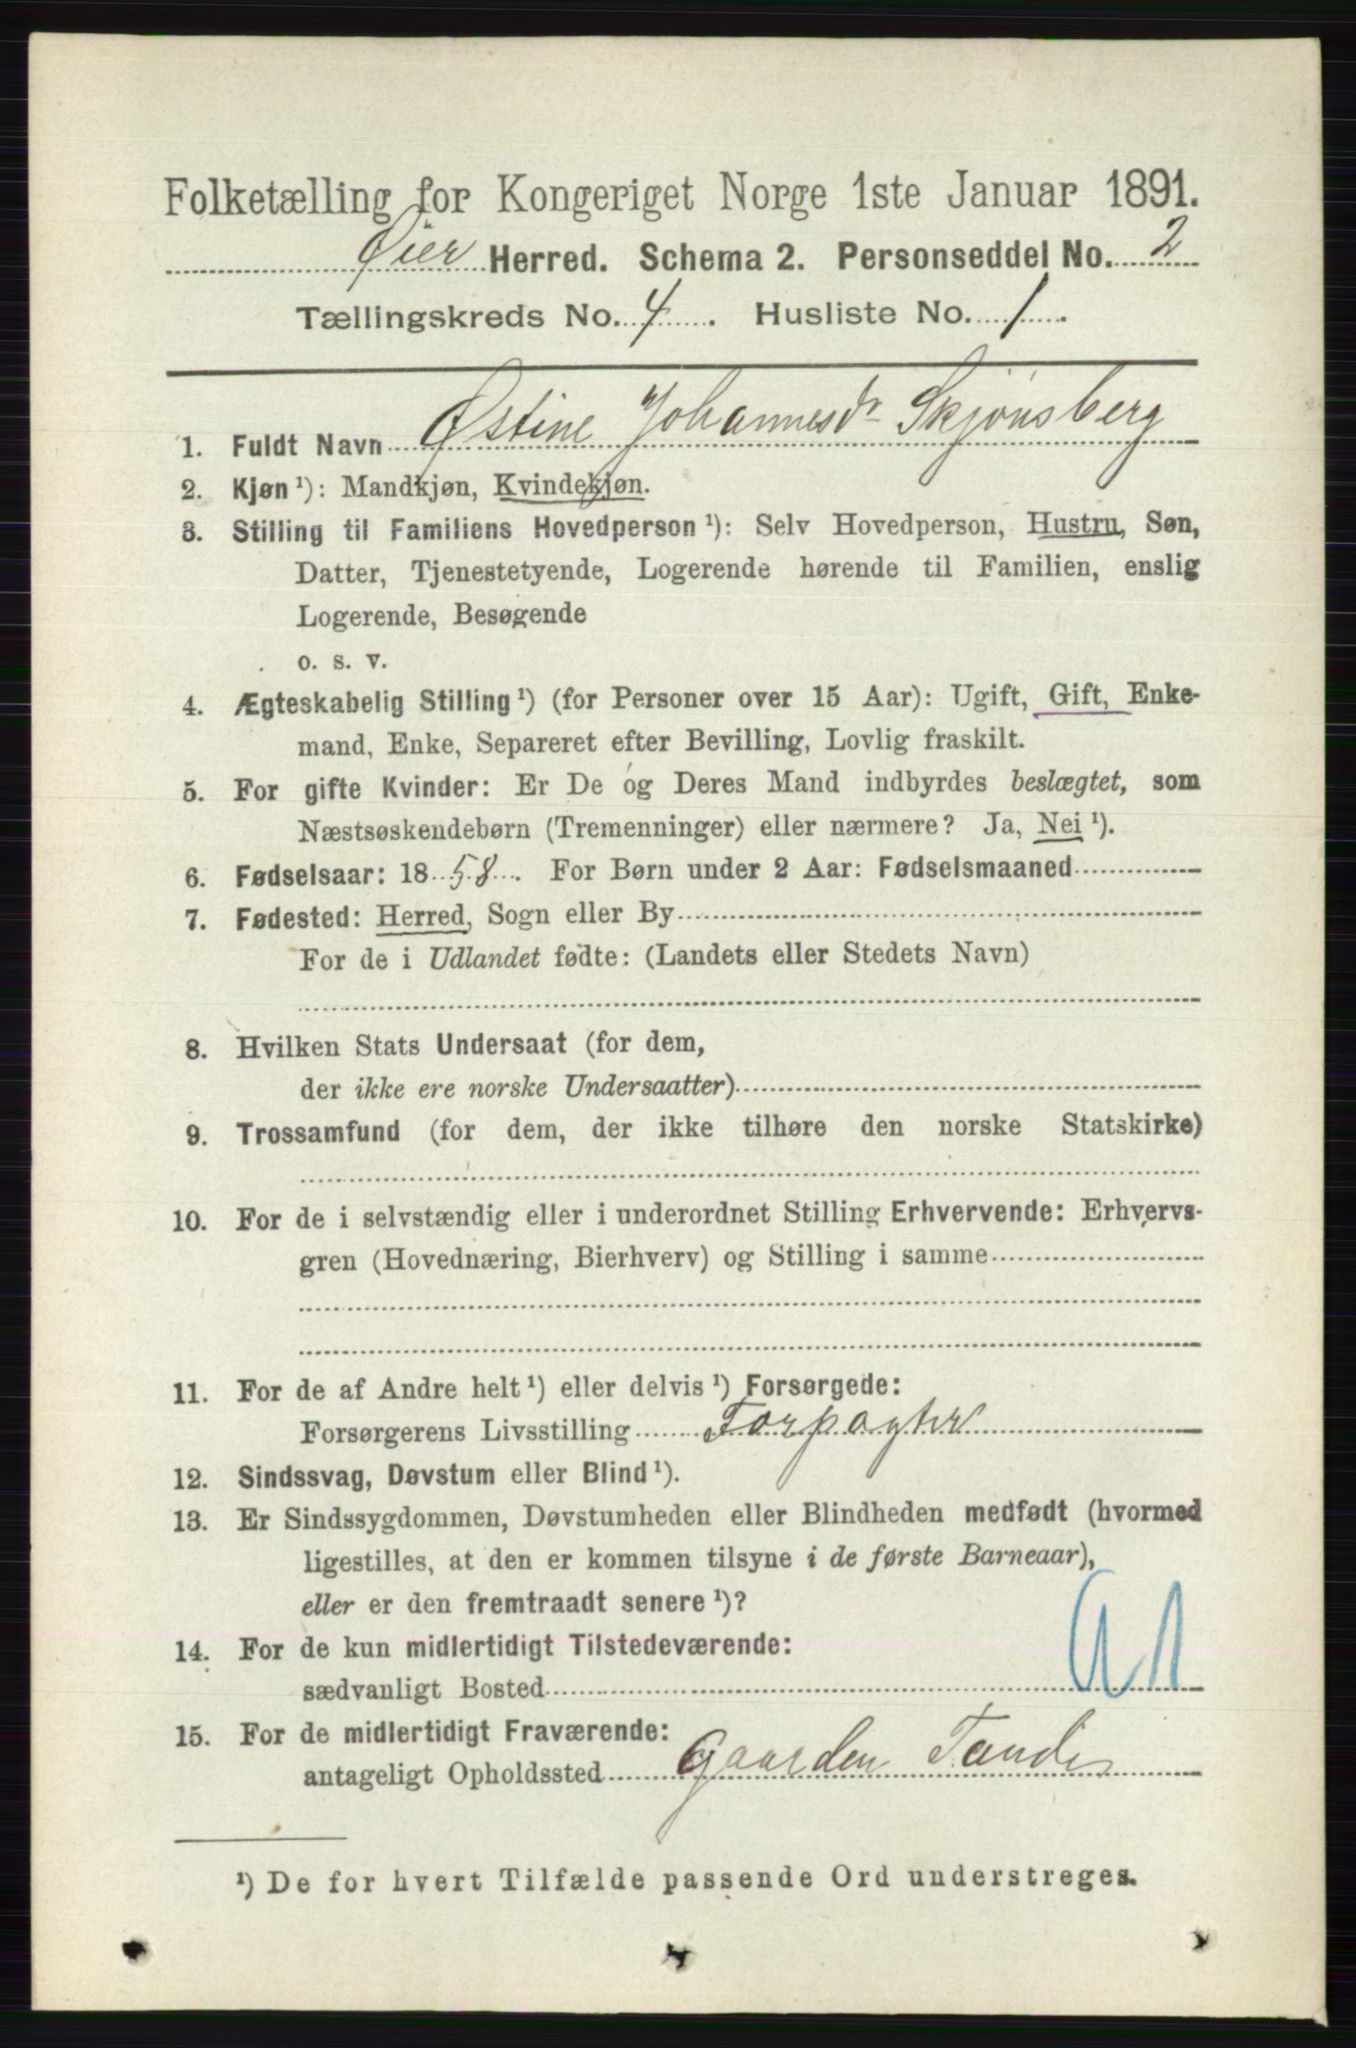 Folketælling for Kongeriget Norge 1ste Januar 1891.
Øier Herred. Schema 2. Personseddel No. 2
Tællingskreds No. 4. Husliste No. 1.
1. Fuldt Navn Østine Johannesdr Skjønsberg
2. Kjøn ¹): Mandkjøn, Kvindekjøn.
3. Stilling til Familiens Hovedperson ¹): Selv Hovedperson, Hustru, Søn,
Datter, Tjenestetyende, Logerende hørende til Familien, enslig
Logerende, Besøgende
o. s. v.
4. Ægteskabelig Stilling ¹) (for Personer over 15 Aar): Ugift, Gift, Enke-
mand, Enke, Separeret efter Bevilling, Lovlig fraskilt.
5. For gifte Kvinder: Er De og Deres Mand indbyrdes beslægtet, som
Næstsøskendebørn (Tremenninger) eller nærmere? Ja, Nei ¹).
6. Fødselsaar: 1858. For Børn under 2 Aar: Fødselsmaaned
7. Fødested: Herred, Sogn eller By
For de i Udlandet fødte: (Landets eller Stedets Navn)
8. Hvilken Stats Undersaat (for dem,
der ikke ere norske Undersaatter)
9. Trossamfund (for dem, der ikke tilhøre den norske Statskirke)
10. For de i selvstændig eller i underordnet Stilling Erhvervende: Erhvervs-
gren (Hovednæring, Bierhverv) og Stilling i samme
11. For de af Andre helt ¹) eller delvis ¹) Forsørgede:
Forsørgerens Livsstilling Forpagter
12. Sindssvag, Døvstum eller Blind ¹).
13. Er Sindssygdommen, Døvstumheden eller Blindheden medfødt (hvormed
ligestilles, at den er kommen tilsyne i de første Barneaar),
eller er den fremtraadt senere ¹)?
14. For de kun midlertidigt Tilstedeværende:
sædvanligt Bosted
15. For de midlertidigt Fraværende:
antageligt Opholdssted Gaarden Tande
¹) De for hvert Tilfælde passende Ord understreges.